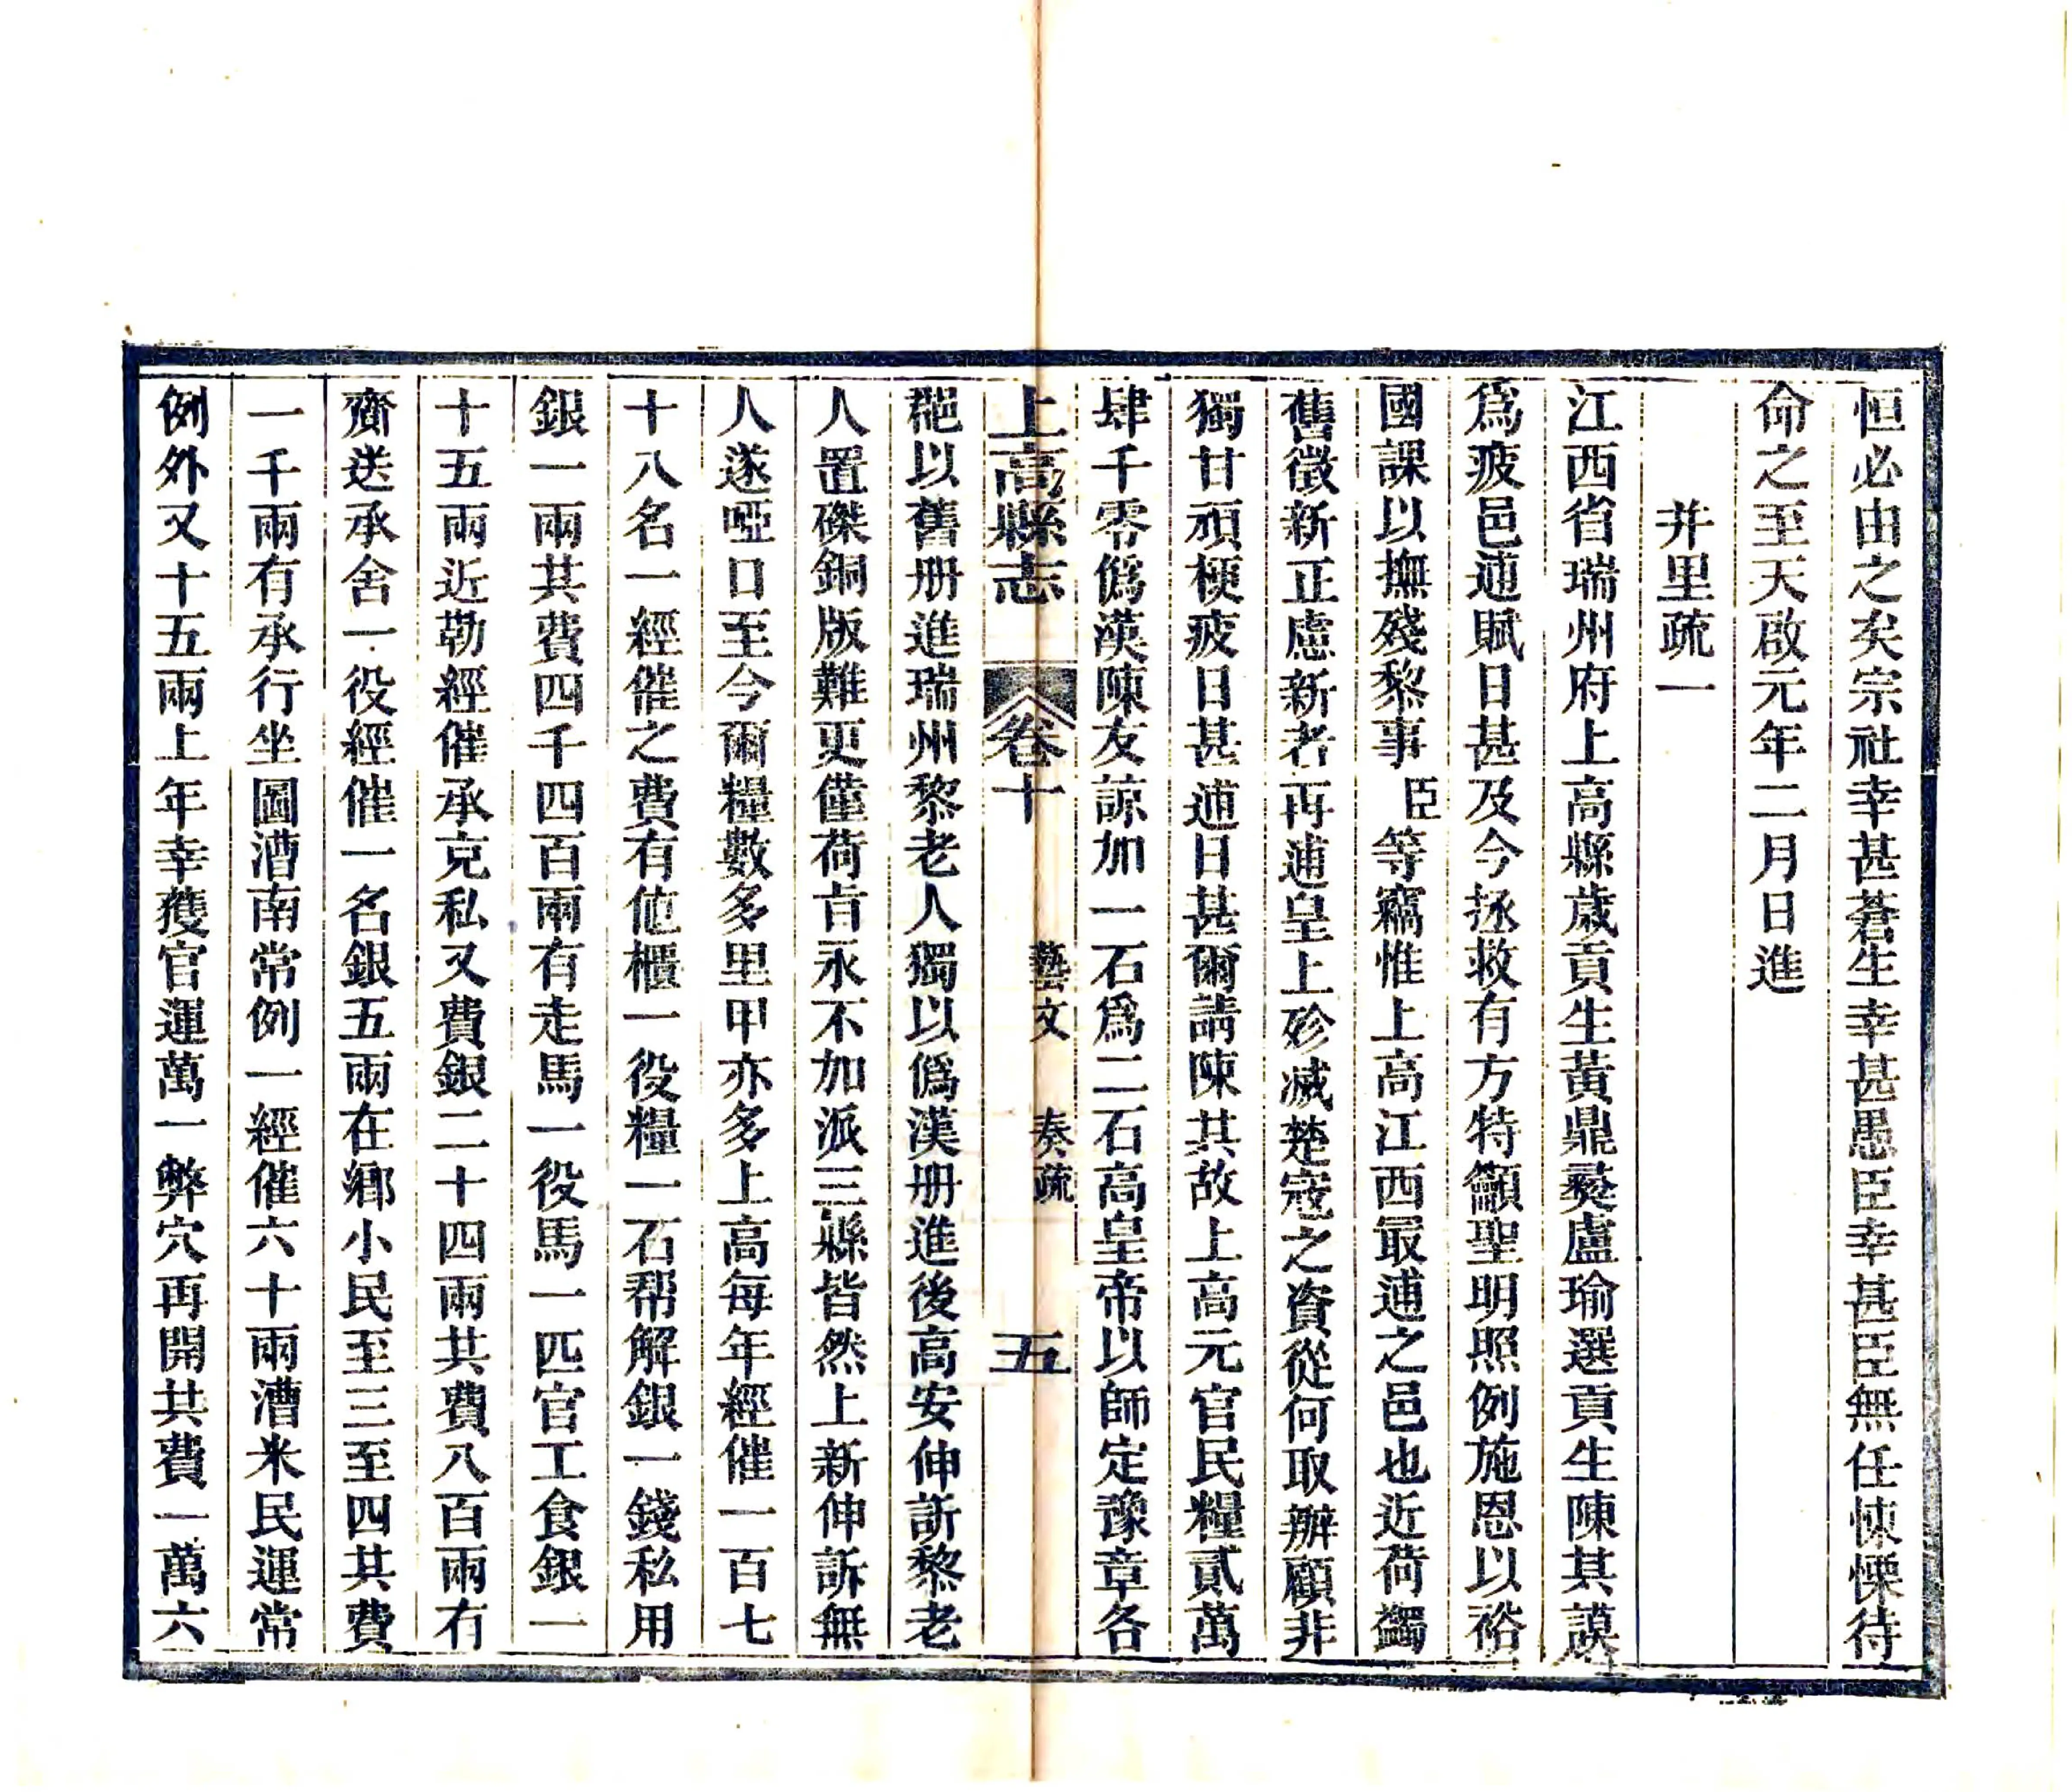 恒必由之矣宗社幸甚蒼生幸甚愚臣幸甚臣無任悚慄待
命之至天啟元年二月日進
并里疏一
江西省瑞州府上高縣歲貢生黃鼎彝盧瑜選貢生陳其謨
爲疲邑逋賦日甚及今拯救有方特籲聖明照例施恩以裕
國課以撫殘黎事臣等竊惟上高江西最逋之邑也近荷蠲
舊徵新正慮新者再逋皇上殄滅楚寇之資從何取辦顧非
獨甘頑梗疲日甚逋日甚爾請陳其故上高元官民糧貳萬
肆千零僞漢陳友諒加一石爲二石高皇帝以師定豫章各
上高縣志 卷十 藝文 奏疏 五
邑以舊册進瑞州黎老人獨以僞漢册進後高安伸訴黎老
人置磔銅版難更僅荷旨永不加派三縣皆然上新伸訴無
人遂啞口至今爾糧數多里甲亦多上高每年經催一百七
十八名一經催之費有他櫃一役糧一石帮解銀一錢私用
銀一兩共費四千四百兩有走馬一役馬一匹官工食銀一
十五兩近勒經催承克私又費銀二十四兩共費八百兩有
齎送承舍一役經催一名銀五兩在鄉小民至三至四共費
一千兩有承行坐圖漕南常例一經催六十兩漕米民運常
例外又十五兩上年幸獲官運萬一弊穴再開共費一萬六